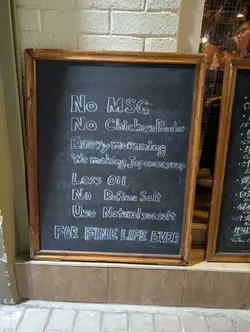 No MSG
No Chicken Powder
Every mourning
We making Japanese soup
Less Oil
No Refime Salt
Use Natural sea salt
FOR FINE LIFE EVER